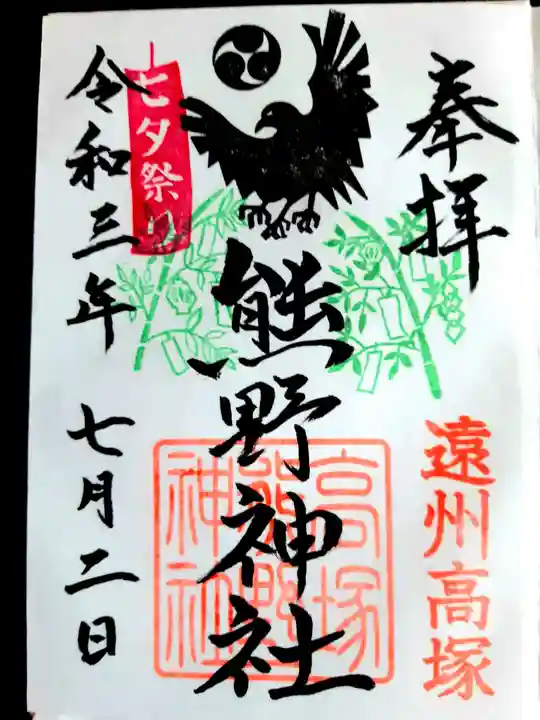 奉拝
遠州高塚
熊野神社
高塚
熊野
神社
七夕祭り
令和三年
七月二日